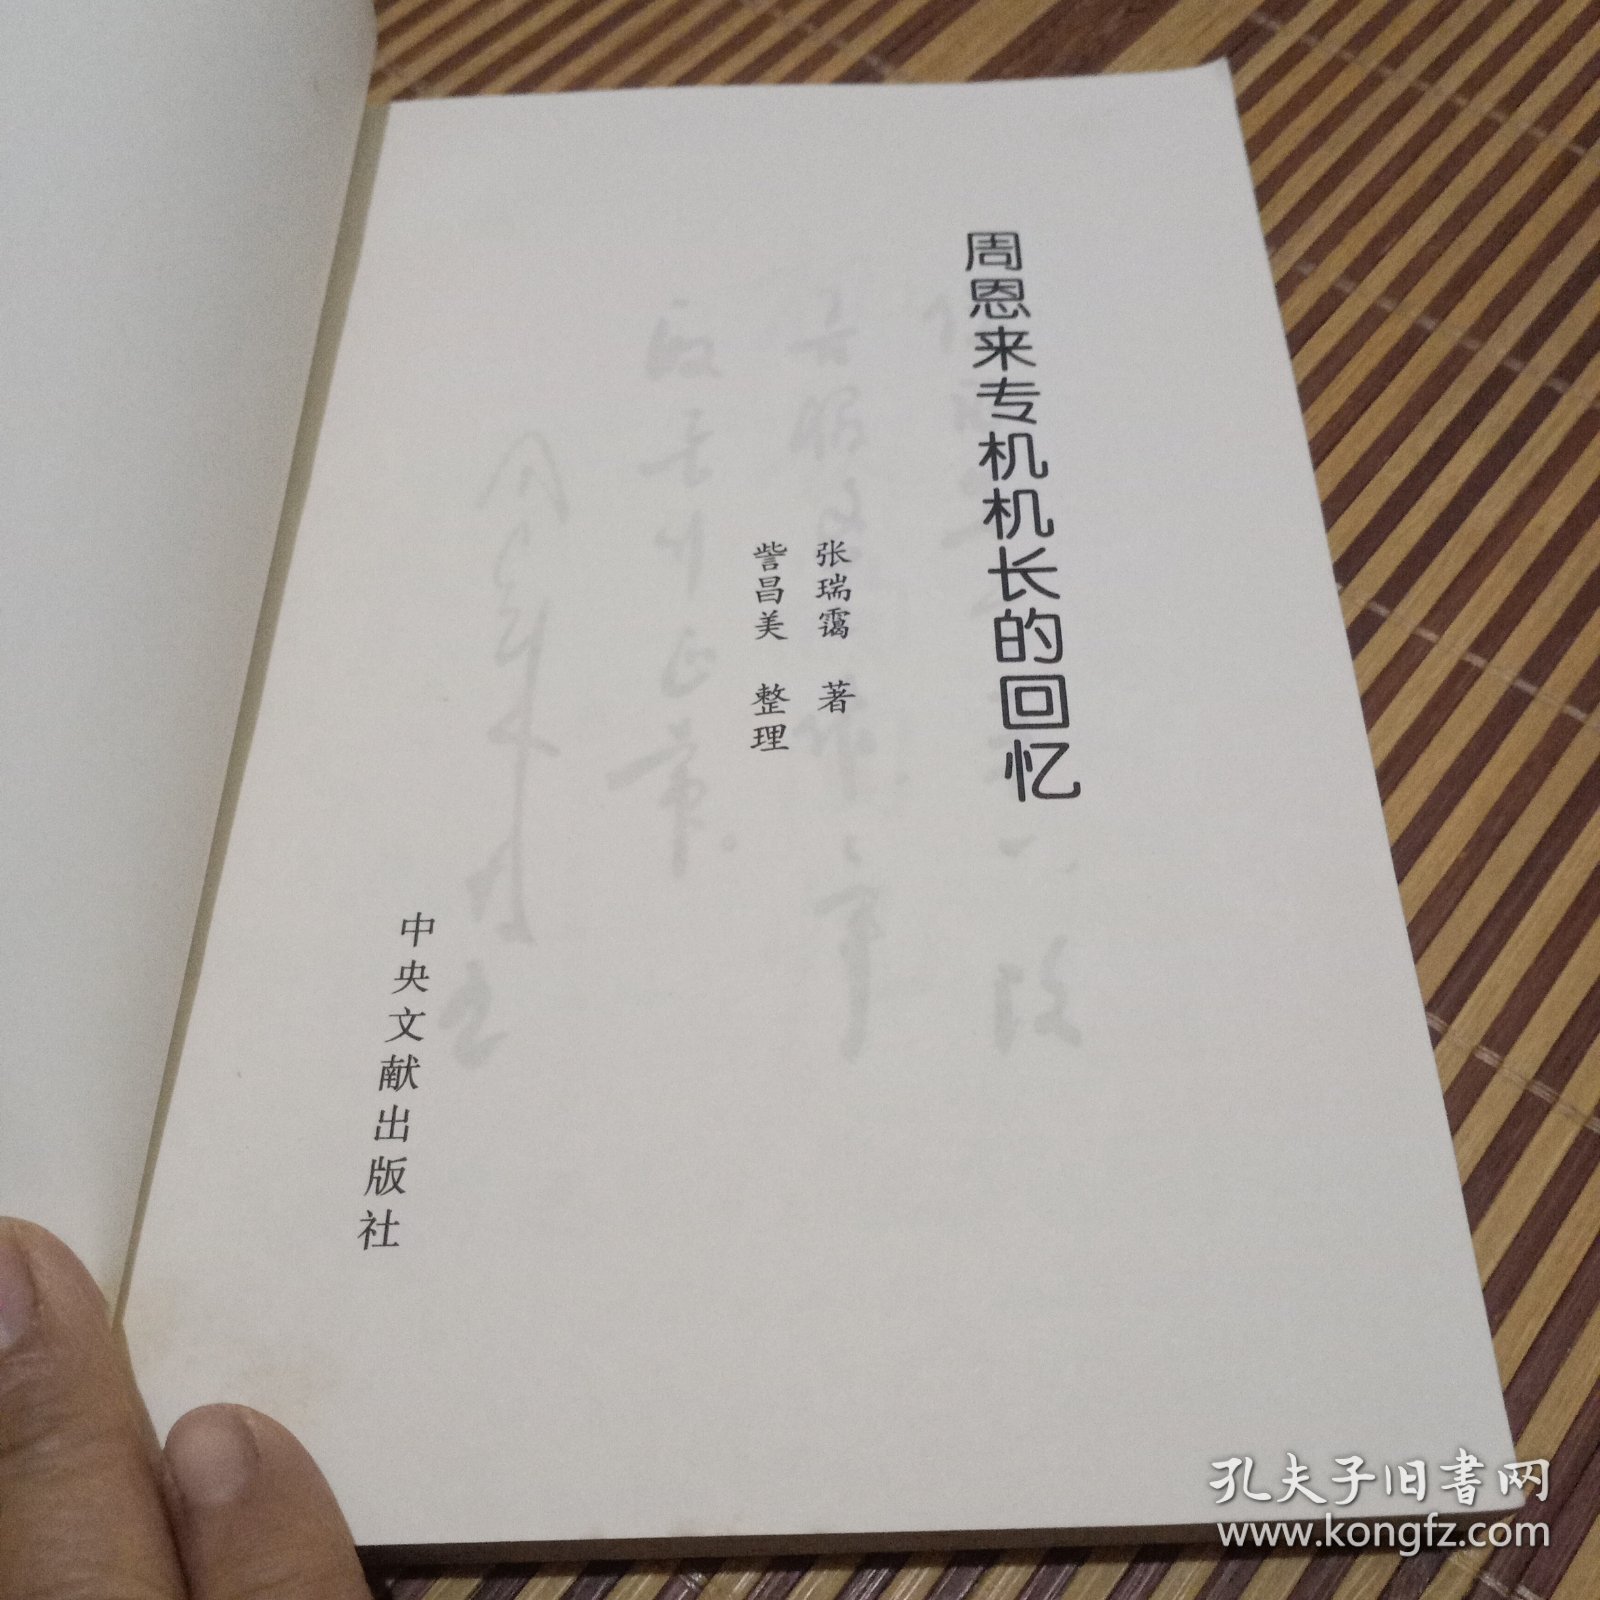 周恩来专机机长的回忆
张瑞霭 著
訾昌美 整理
中央文献出版社
孔夫子旧书网
www.kongfz.com